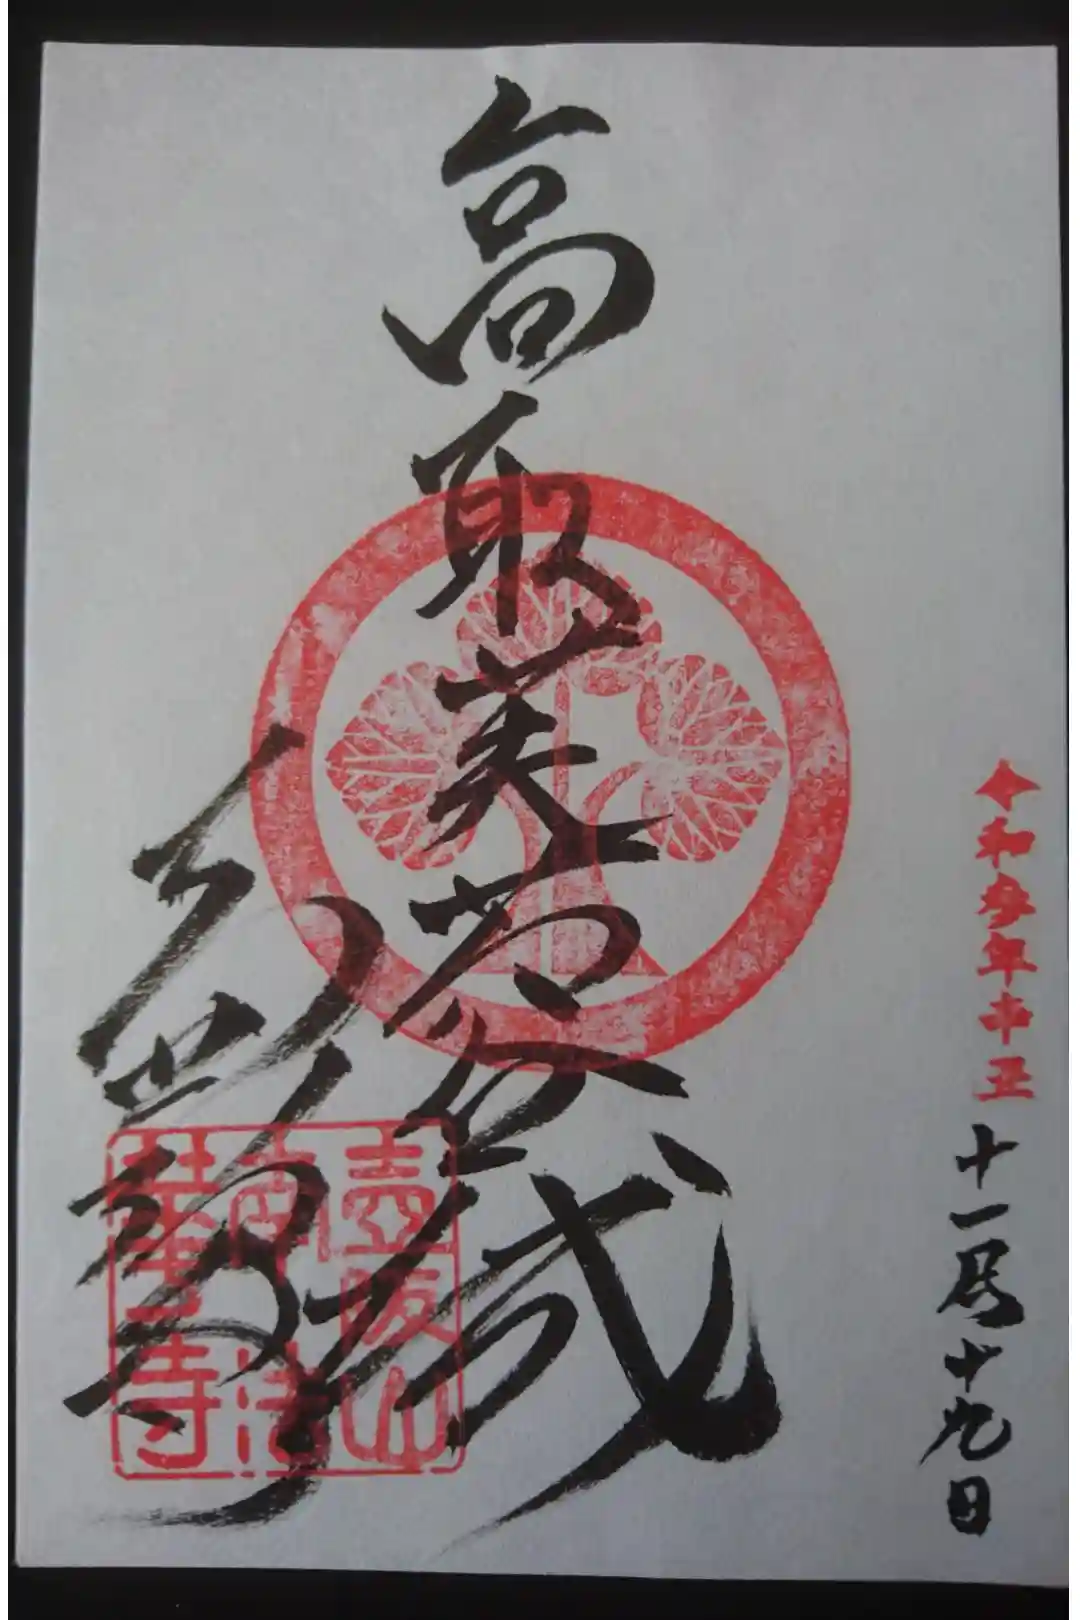 令和参年辛丑
十一月十九日
高取芙蓉城
壺阪山
南法
華寺